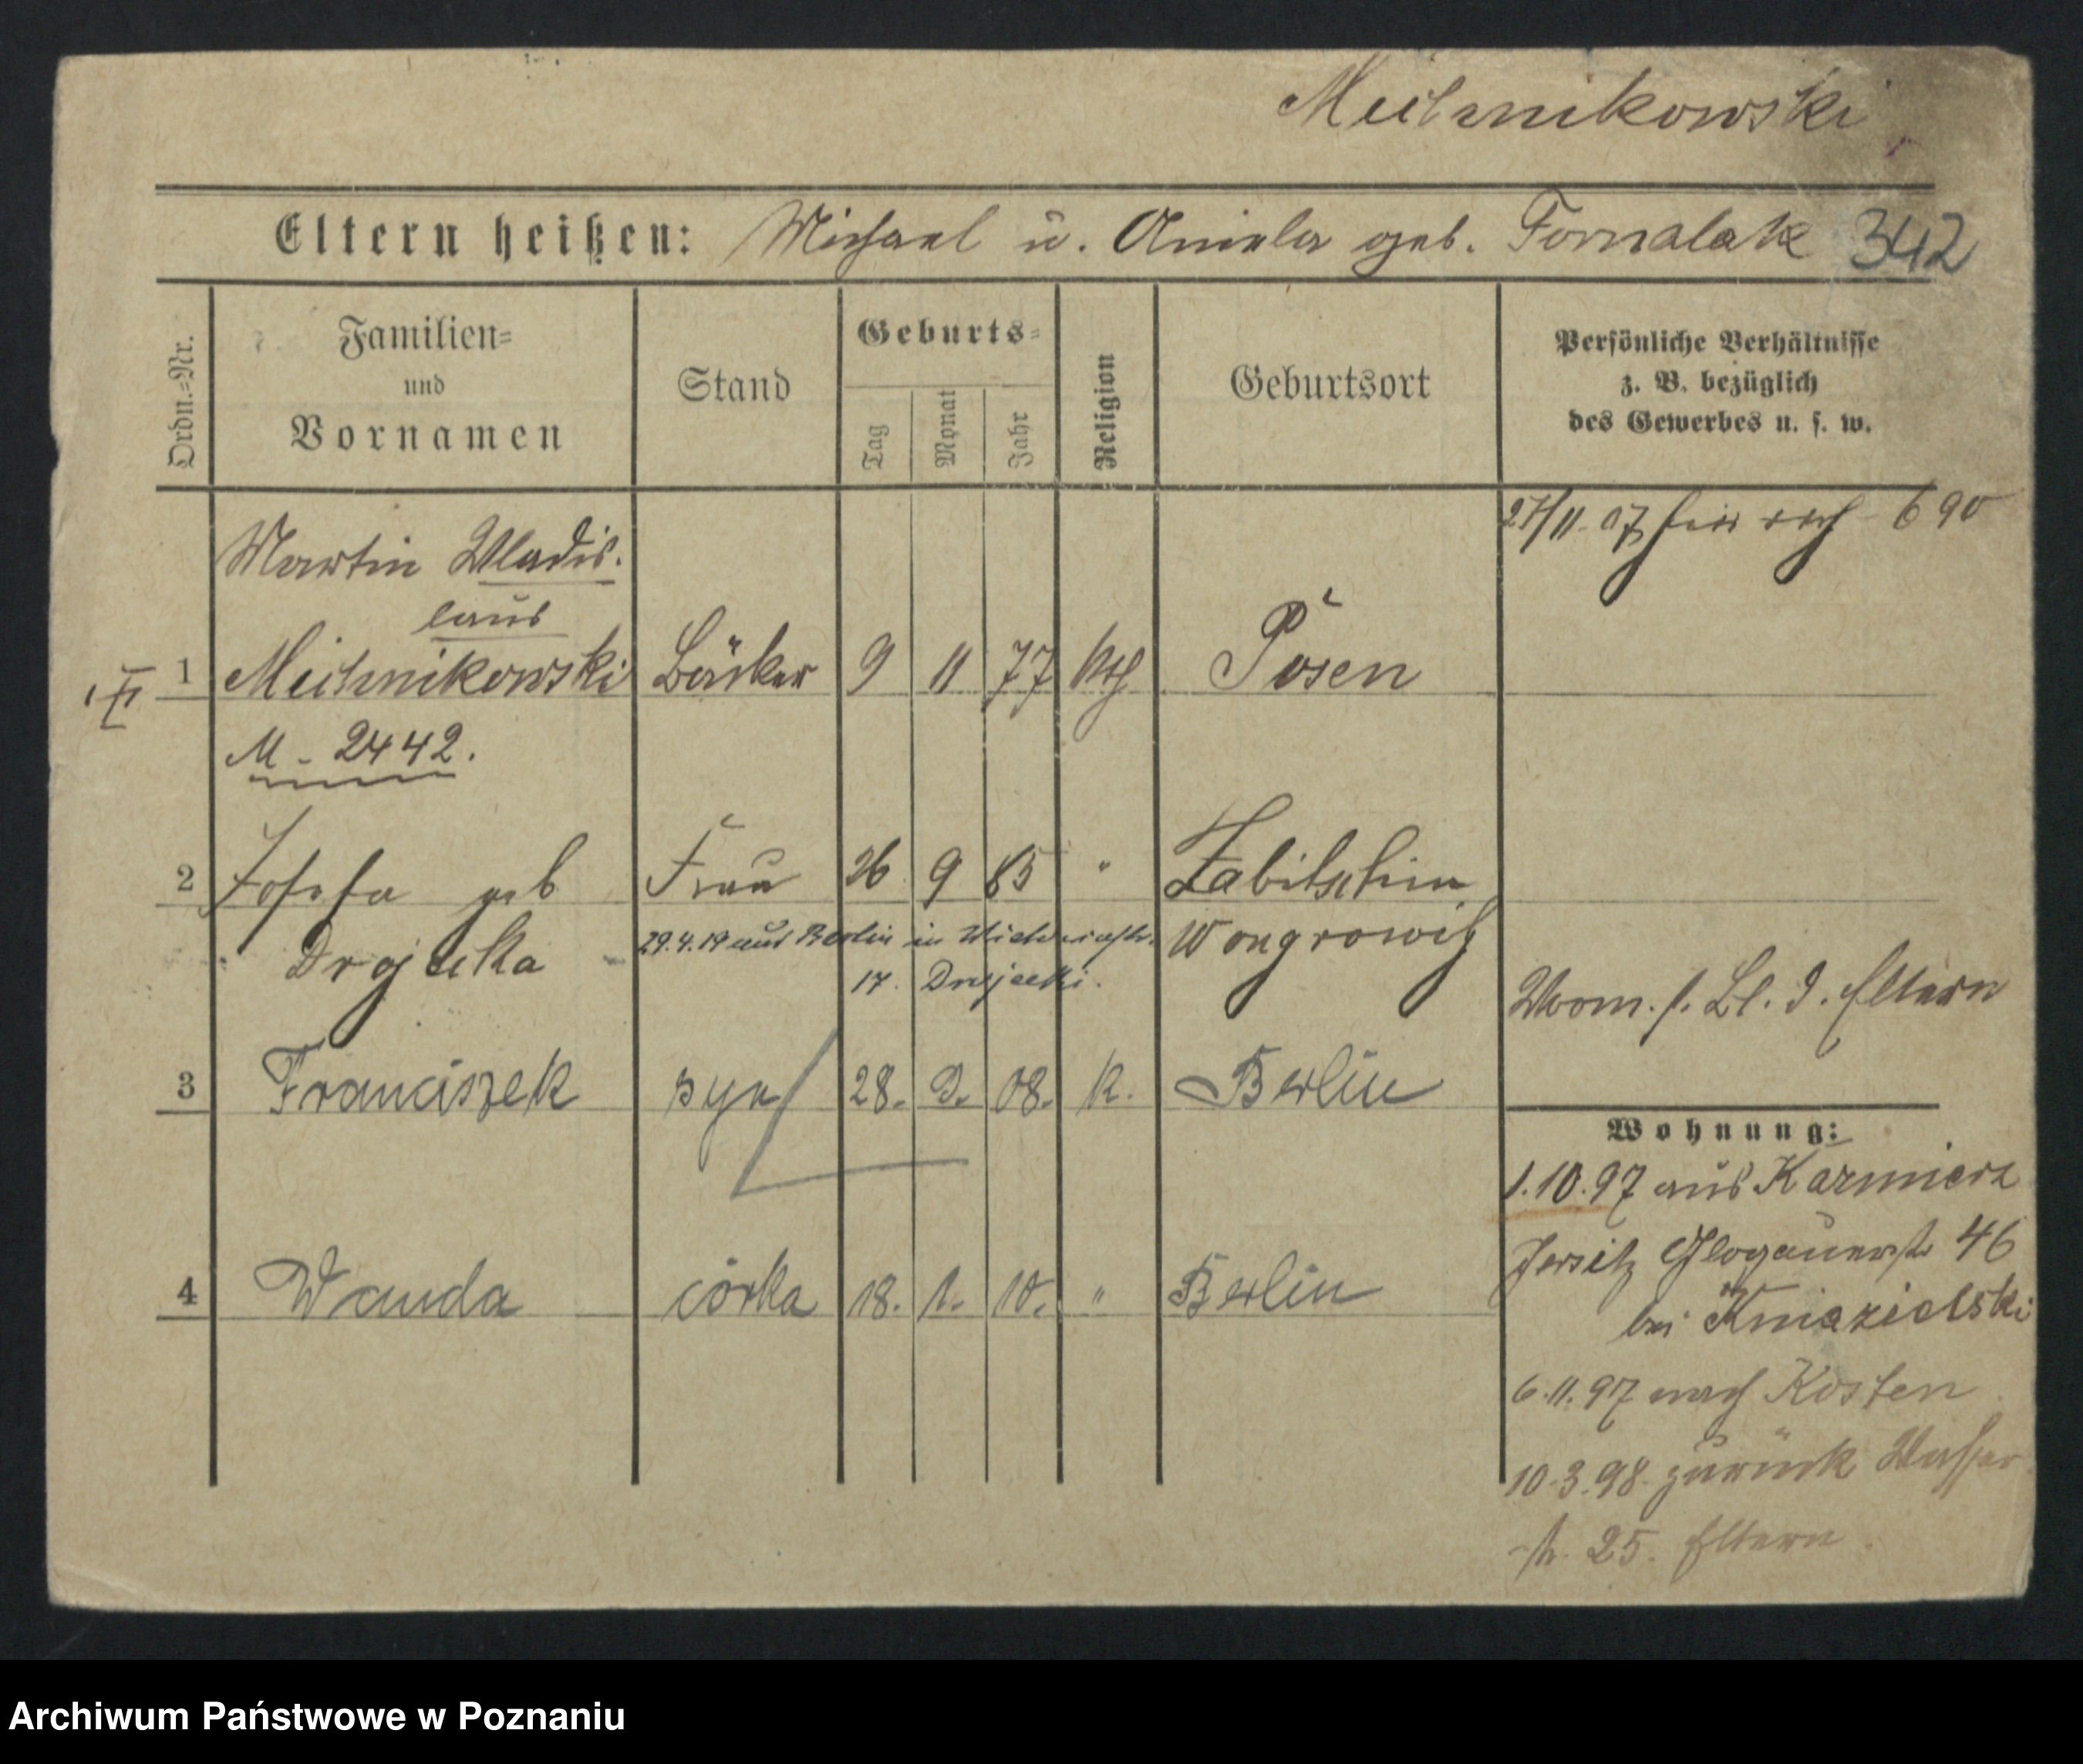 Miehnikowski
Eltern heißen: Michael u. Aniela geb. Fornalak 342
Ordn.=Nr.
Familien=
und
Vornamen
Stand
Geburts=
Tag
Monat
Jahr
Religion
Geburtsort
Persönliche Verhältnisse
z. B. bezüglich
des Gewerbes u. s. w.
27/11. 07 690
Martin Wladis.
laus
1 Miehnikowski Bäcker 9 11 77 kth Posen
M - 2442.
2 Josefa geb Frau 26 9 85 " Zabitschin
Drojecka
29.4.19 aus Berlin in
17. Drojecki.
Wongrowitz
Wom. s. Bl. d. Eltern
3 Franciszek syn 28. 9. 08. k. Berlin
Wohnung:
1.10.97 aus Kazmierz
Jersitz Glogauerstr 46
bei
4 Wanda córka 18. 1. 10. " Berlin
6.11.97 nach Kosten
10.3.98. zurück Wasser
-str. 25. Eltern
Archiwum Państwowe w Poznaniu